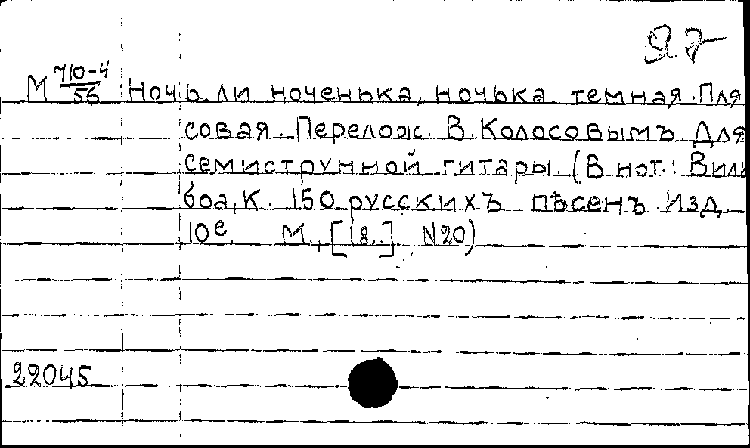 М 710-4/56 Ночь ли ноченька, ночька темная. Пля
совая. Перелож. В. Колосовымъ для
семиструнной гитары. (В нот.: Виль
боа, К. 150 русскихъ пѣсенъ. Изд.
10е. М., [18..]. N20)
22045